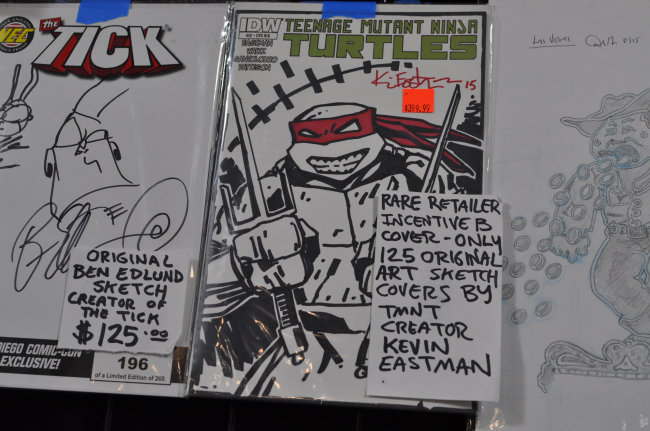 NEC
THE
TICK
ORIGINAL
BEN EDLUND
SKETCH
CREATOR OF
THE TICK
$125.00
DIEGO COMIC-CON
EXCLUSIVE!
196
of a Limited Edition of 260
IDW
TEENAGE MUTANT NINJA
TURTLES
EASTMAN
WALTZ
SANTOLOUCO
PATTISON
15
$399.99
RARE RETAILER
INCENTIVE B
COVER - ONLY
125 ORIGINAL
ART SKETCH
COVERS BY
TMNT
CREATOR
KEVIN
EASTMAN
LAS VEGAS